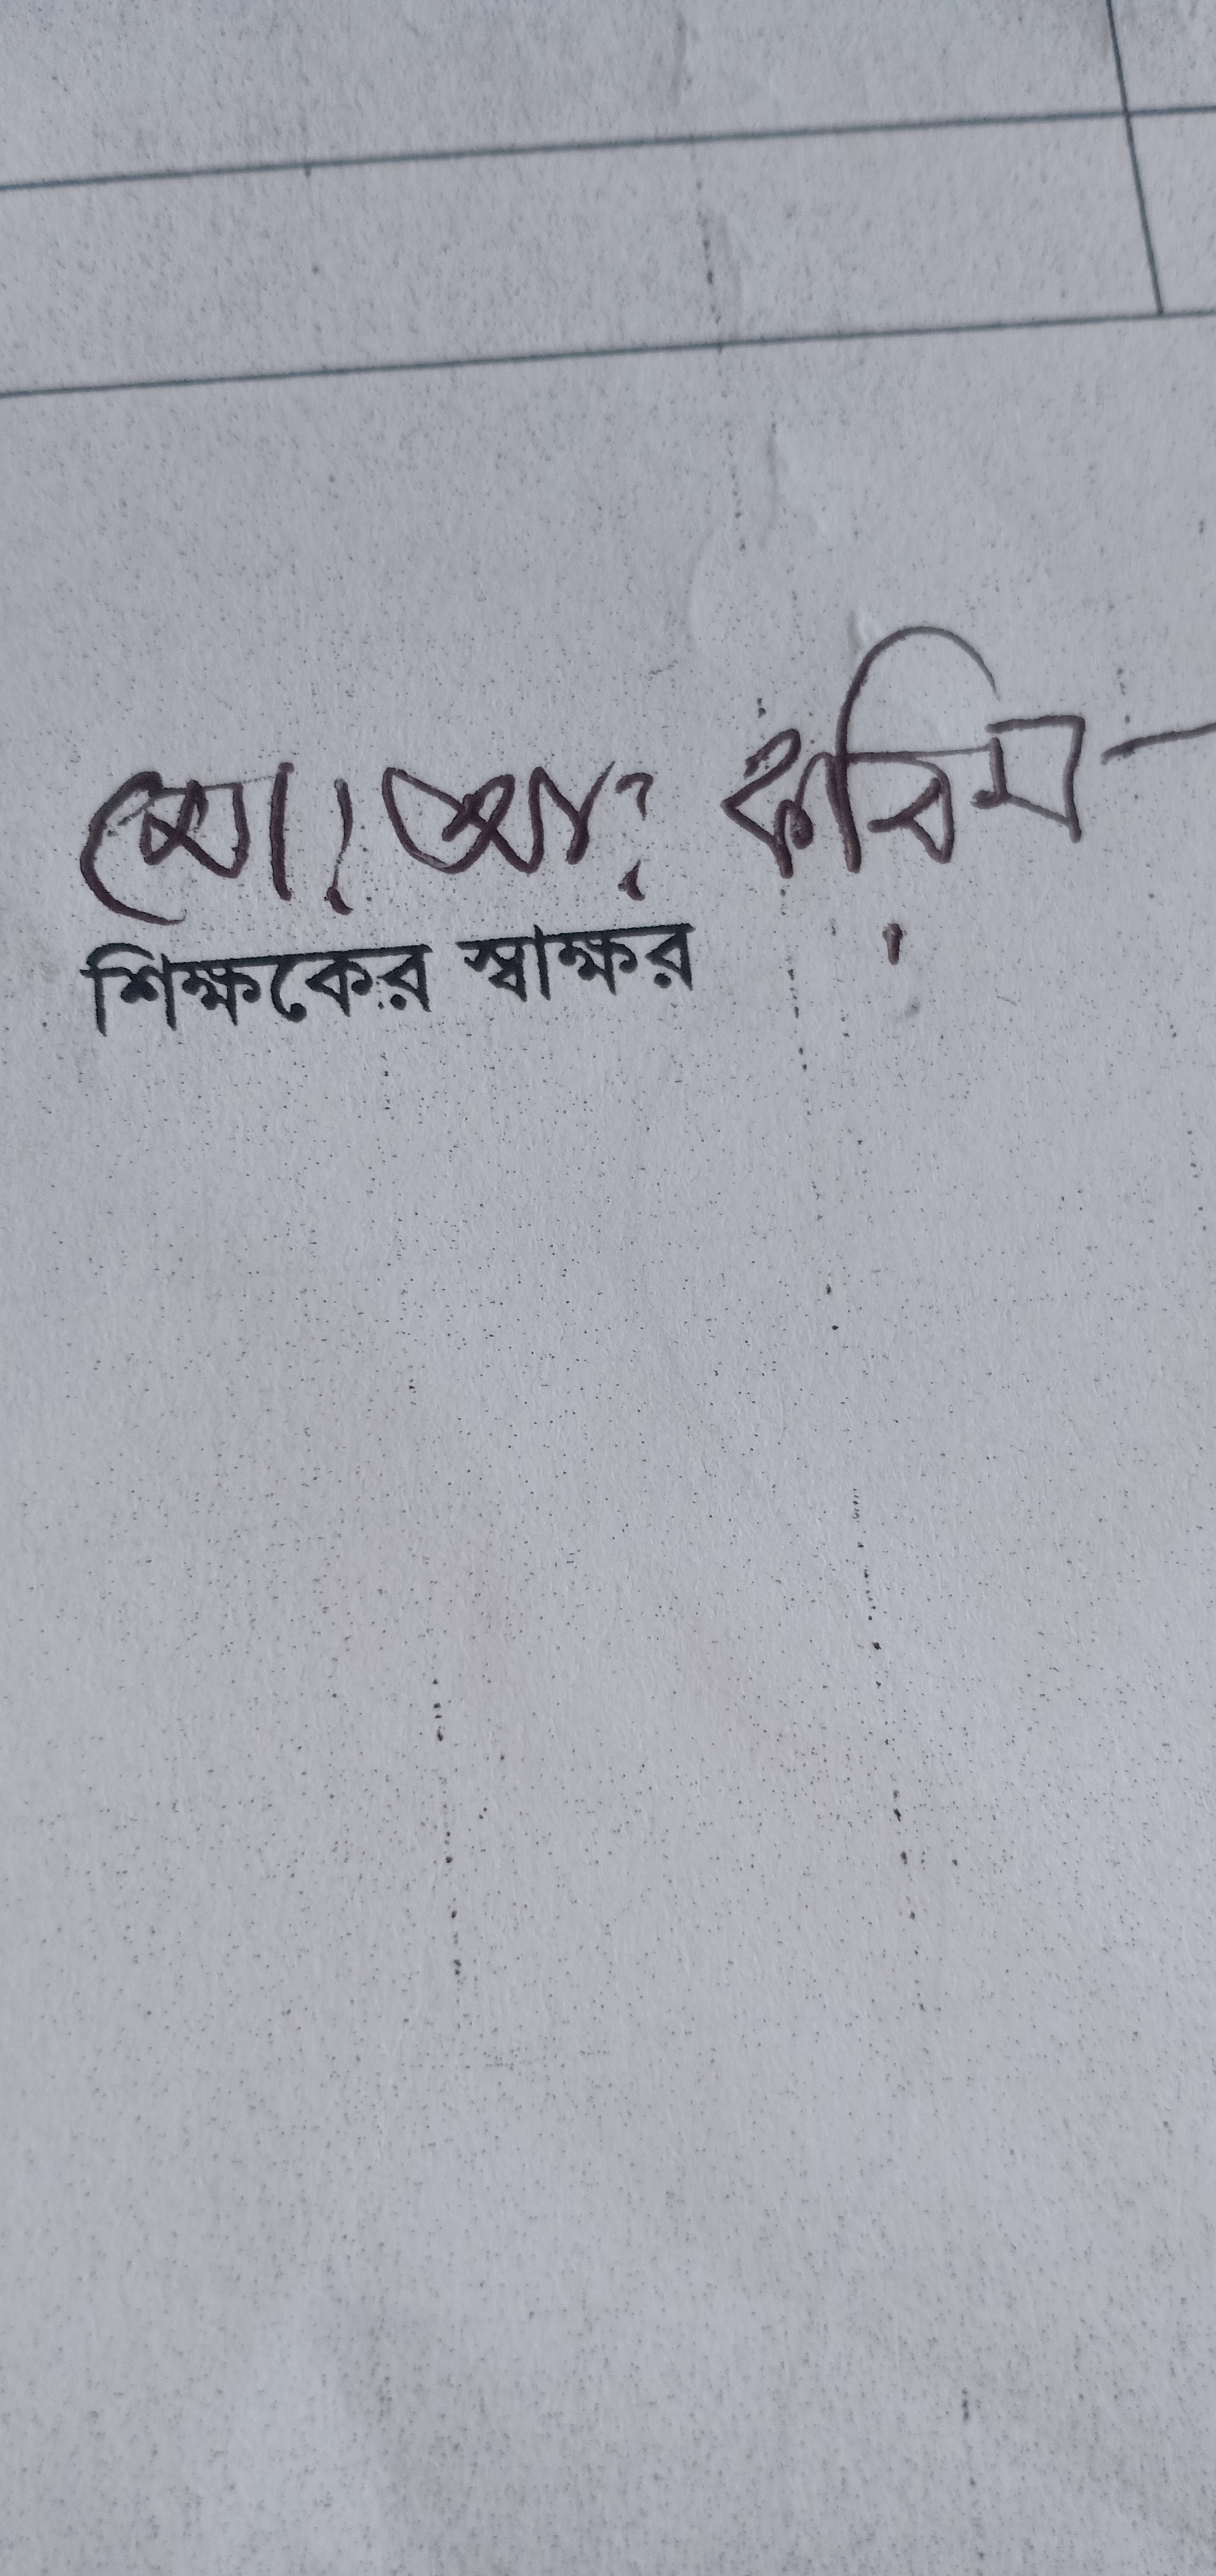 মোঃ আঃ করিম
শিক্ষকের স্বাক্ষর